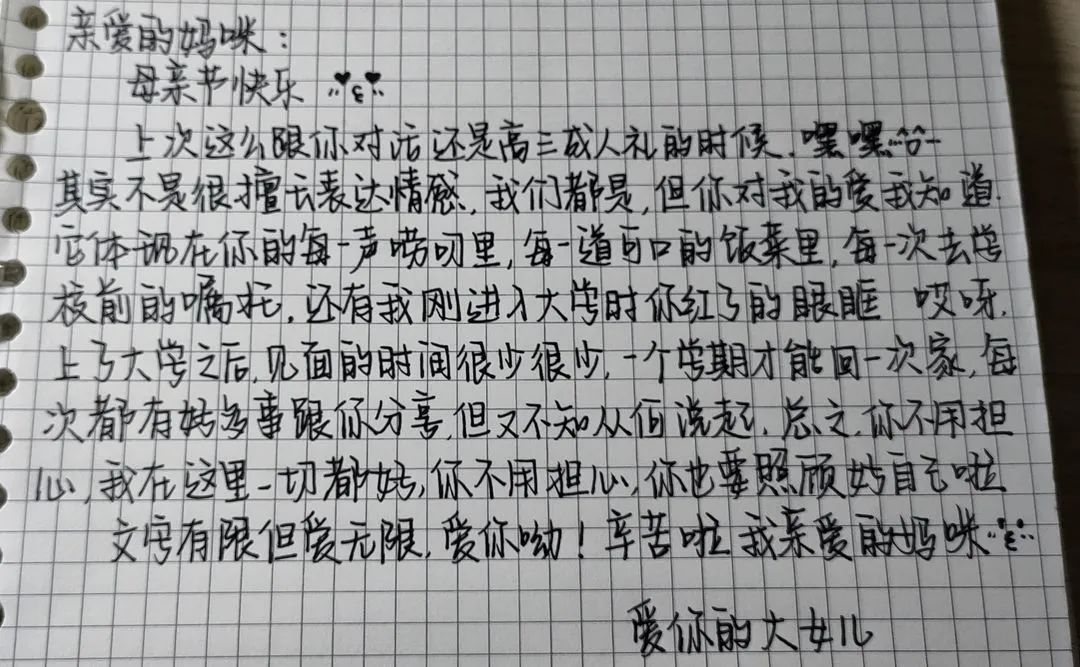 亲爱的妈咪:
母亲节快乐
上次这么跟你对话还是高三成人礼的时候,嘿嘿
其实不是很擅长表达情感,我们都是,但你对我的爱我知道.
它体现在你的每一声唠叨里,每一道可口的饭菜里,每一次去学
校前的嘱托,还有我刚进入大学时你红了的眼眶 哎呀.
上了大学之后,见面的时间很少很少,一个学期才能回一次家,每
次都有好多事跟你分享,但又不知从何说起.总之,你不用担
心,我在这里一切都好,你不用担心,你也要照顾好自己啦
文字有限但爱无限,爱你呦!辛苦啦 我亲爱的妈咪
爱你的大女儿